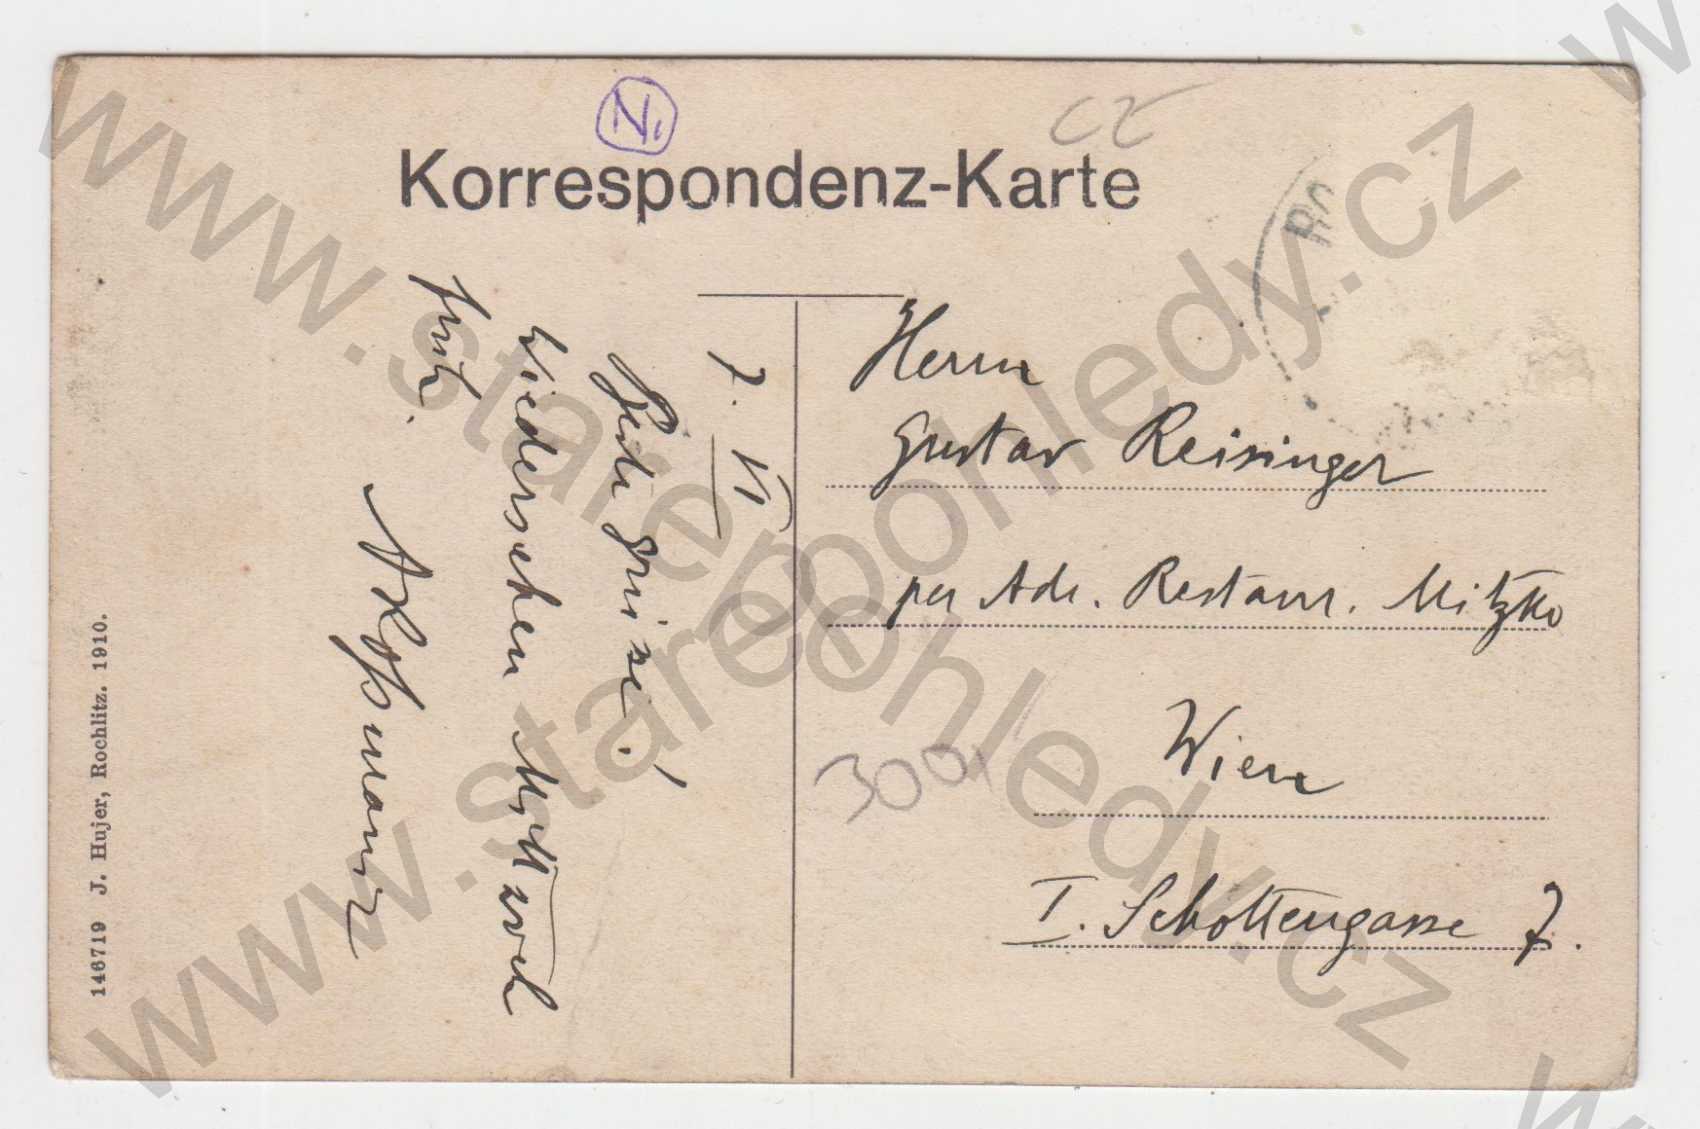 N.
CZ
Korrespondenz-Karte
7. VI
Beste Grüsse!
Wiedersehen Mittwoch
früh.
Herrn
Gustav Reisinger
per Adr. Restaur. Mitzko
Wien
I. Schottengasse 7.
300,
146719 J. Hujer, Rochlitz. 1910.
www.starepohledy.cz
www.starepohledy.cz